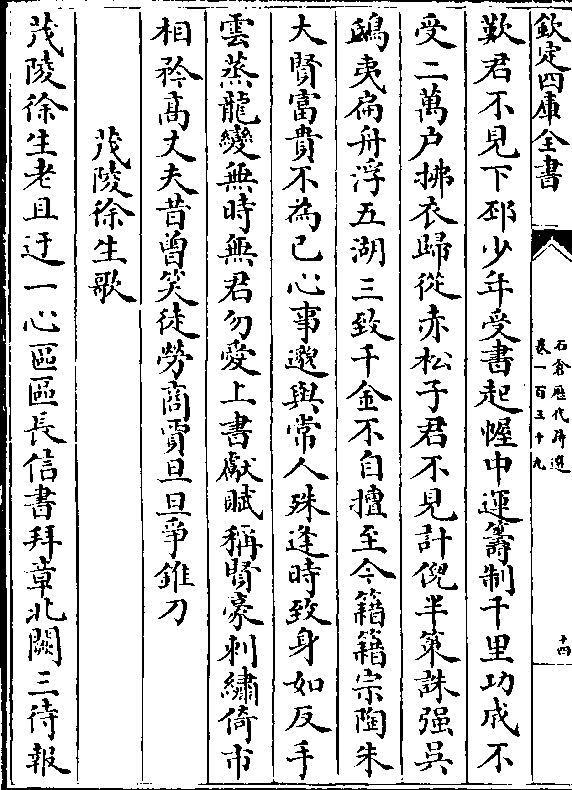 欽定四庫全書
石倉歷代詩選
卷一百三十九
十四
歎君不見下邳少年受書起幄中運籌制千里功成不
受二萬户拂衣歸從赤松子君不見計倪半策誅强吳
鴟夷扁舟浮五湖三致千金不自擅至今籍籍宗陶朱
大賢富貴不為己心事邈與常人殊逢時致身如反手
雲蒸龍變無時無君勿愛上書獻賦稱賢豪刺繡倚市
相矜高丈夫昔曾笑徒勞商賈旦旦爭錐刀
茂陵徐生歌
茂陵徐生老且迂一心區區長信書拜章北闕三待報